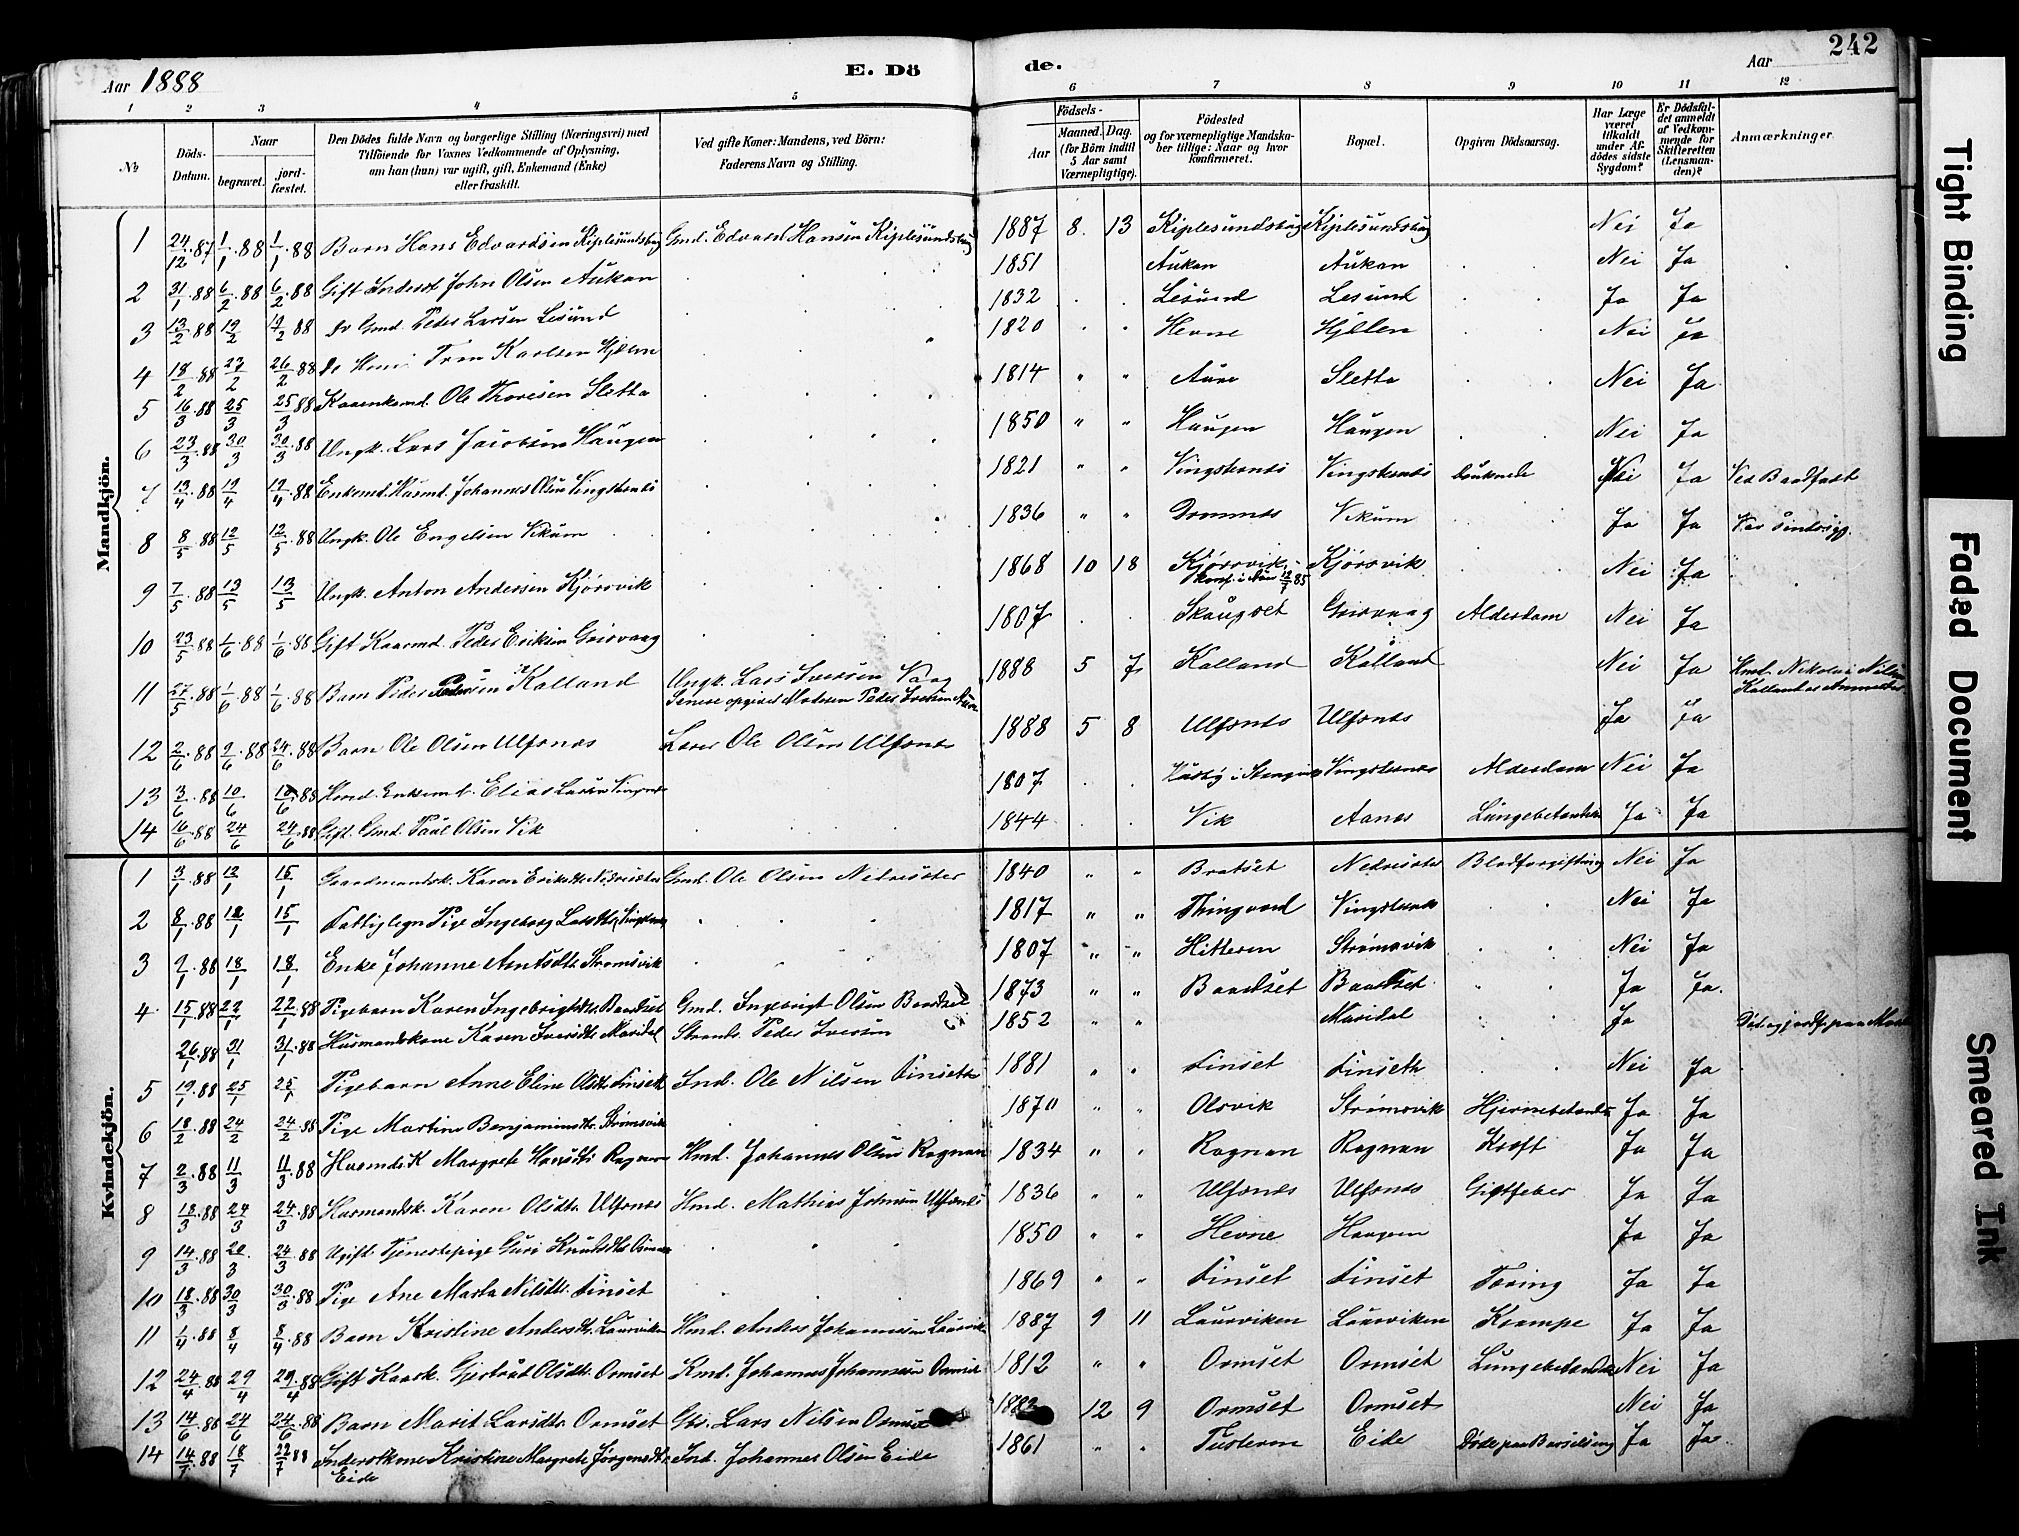 242
Aar 1888
E. Dö
de.
Aar
1 2 3 4 5 6 7 8 9 10 11 12
No
Döds-Datum.
Naar
begravet.
jord-fæstet.
Den Dödes fulde Navn og borgerlige Stilling (Næringsvei) med
Tilföiende for Voxnes Vedkommende af Oplysning,
om han (hun) var ugift, gift, Enkemand (Enke)
eller fraskilt.
Ved gifte Koner: Mandens, ved Börn:
Faderens Navn og Stilling.
Födsels-
Aar
Maaned. Dag.
(for Börn indtil
5 Aar samt
Værnepligtige).
Födested
og for værnepligtige Mandska-
ber tillige: Naar og hvor
konfirmeret.
Bopæl.
Opgiven Dödsaarsag.
Har Læge
været
tilkaldt
under Af-
dödes sidste
Sygdom?
Er Dödsfal-
det anmeldt
af Vedkom-
mende for
Skifteretten
(Lensman-
den)?
Anmærkninger.
Mandkjön.
1 24/12.87 1/1.88 1/1.88 Barn Hans Edvardsen Kiplesundsbug Gmd. Edvard Hansen Kiplesundsbug 1887 8. 13 Kiplesundsbug Kiplesundsbug Nei Ja
2 31/1.88 6/2.88 6/2.88 Gift Inderst John Olsen Aukan 1851 Aukan Aukan Nei Ja
3 13/2.88 19/2 19/2.88 do Gmd. Peder Larsen Lesund 1832 Lesund Lesund Ja Ja
4 18/2.88 27/2 26/2.88 do Tron Karlsen Hjellen 1820 Hevne Hjellen Nei Ja
5 16/3.88 25/3 25/3.88 Ole Thoresen Sletta 1814 " " Aure Sletta Nei Ja
6 23/3.88 30/3 30/3.88 Ungk. Lars Jacobsen Haugen 1850 " " Haugen Haugen Nei Ja
7 13/4.88 19/4 19/4.88 Enkemd. Husmd. Johannes Olsen Vingsternes 1821 " " Vingsternes Vingsternes Druknede Nei Ja Ved Baadfart
8 8/5.88 12/5 12/5.88 Ungk. Ole Engelsen Vikum 1836 " " Dromnes Vikum Ja Ja Var sindssyg.
9 7/5.88 13/5 13/5 Ungk. Anton Andersen Kjørsvik 1868 10 18 Kjørsvik Kjørsvik Nei Ja
10 23/5.88 1/6.88 1/6.88 Gift Kaarmd. Peder Eriksen Grisvaag 1807 Skaugset Grisvaag Alderdom Nei Ja
11 27/5.88 1/6.88 1/6.88 Barn Peder Pedersen Kalland Ungk. Lars Iversen Vaag 1888 5 7 Kalland Kalland Nei Ja Hmd. Nikolai Nilsen
Senere opgivet Moderen Peder Iversen
12 2/6.88 9/6.88 24/6.88 Barn Ole Olsen Ulfsnes Lærer Ole Olsen Ulfsnes 1888 5 8 Ulfsnes Ulfsnes Ja Ja
13 3/6.88 10/6 10/6.88 Hmd. Enkemd. Elias Larsen 1807 Vingsternes Alderdom Nei Ja
14 16/6.88 24/6 24/6.88 Gift Gmd. Paul Olsen Vik 1844 Vik Aanes Lungebetændelse Ja Ja
Kvindekjön.
1 3/1.88 13/1 15/1 Gaardmandsk. Karen Eriksdtr. Nedresæter Gmd. Ole Olsen Nedresæter 1840 " " Bratset Nedresæter Blodforgiftning Nei Ja
2 8/1.88 12/1 15/1 Fattiglegn Pige Ingeborg Larsdtr. Vingsternes 1817 " " Thingvold Vingsternes Nei Ja
3 9/1.88 18/1 18/1 Enke Johanne Arntsdtr. Strømsvik 1807 " " Hitteren Strømsvik Nei Ja
4 15/1.88 22/1 22/1.88 Pigebarn Karen Ingebrigtsdtr. Baardset Gmd. Ingebrigt Olsen Baardset 1873 " " Baardset Baardset Ja Ja.
26/1.88 31/1 31/1.88 Husmandskone Karen Iversdtr. Maridal Peder Iversen 1852 " " Maridal Ja
5 19/1.88 25/1 25/1 Pigebarn Anne Eline Olsdtr. Linseth Ind. Ole Nilsen Linseth 1881 " " Linset Linseth Nei Ja
6 18/2.88 24/2 24/2.88 Pige Martine Benjaminsdtr. Strømsvik 1870 " " Olsvik Strømsvik Hjernebetændelse Ja Ja
7 2/3.88 11/3 11/3.88 Husmds.K Margrete Hansdtr. Rognan Hmd. Johannes Olsen Rognan 1834 " " Rognan Rognan Kræft Ja Ja
8 18/3.88 24/3 24/3.88 Husmandsk. Karen Olsdtr. Ulfsnes Hmd. Mathias Johnsen Ulfsnes 1836 " " Ulfsnes Ulfsnes Gigtfeber Ja Ja
9 14/3.88 20/3 24/3.88 Ugift Tjenestepige Guri Knudsdtr. 1850 " " Hevne Haugen Ja Ja
10 18/3.88 30/3 30/3.88 Pige Ane Marta Nilsdtr. Linset 1869 " " Linset Linset Tæring Ja Ja
11 1/4.88 8/4 8/4.88 Barn Kristine Andersdtr. Laurviken Hmd. Anders Johannesen Laurvik 1887 9 11 Laurviken Laurviken Krampe Ja Ja
12 24/4.88 29/4 29/4.88 Gift Kaark. Gjertrud Olsdtr. Ormset Kmd. Johannes Johannesen Ormset 1812 " " Ormset Ormset Lungebetændelse Nei Ja
13 14/6.88 24/6 24/6.88 Barn Marit Larsdtr. Ormset Lars Nilsen Ormset 12 9 Ormset Ormset Nei Ja
14 14/7.88 18/7 22/7.88 Inderstkone Kristine Margrete Jørgensdtr. Ind. Johannes Olsen Eide 1861 " " Tusteren Eide Døde paa Barselseng Ja Ja
Eide
Tight Binding
Faded Document
Smeared Ink